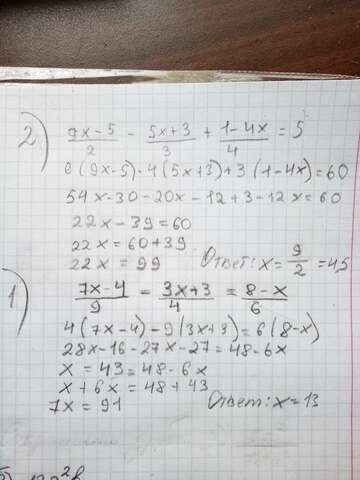 2) 9x-5/2 - 5x+3/3 + 1-4x/4 = 5
6(9x-5)-4(5x+3)+3(1-4x)=60
54x-30-20x-12+3-12x=60
22x-39=60
22x=60+39
22x=99 Ответ: x=9/2=4,5
1) 7x-4/9 = 3x+3/4 = 8-x/6
4(7x-4)-9(3x+3)=6(8-x)
28x-16-27x-27=48-6x
x=43=48-6x
x+6x=48+43
7x=91 Ответ: x=13